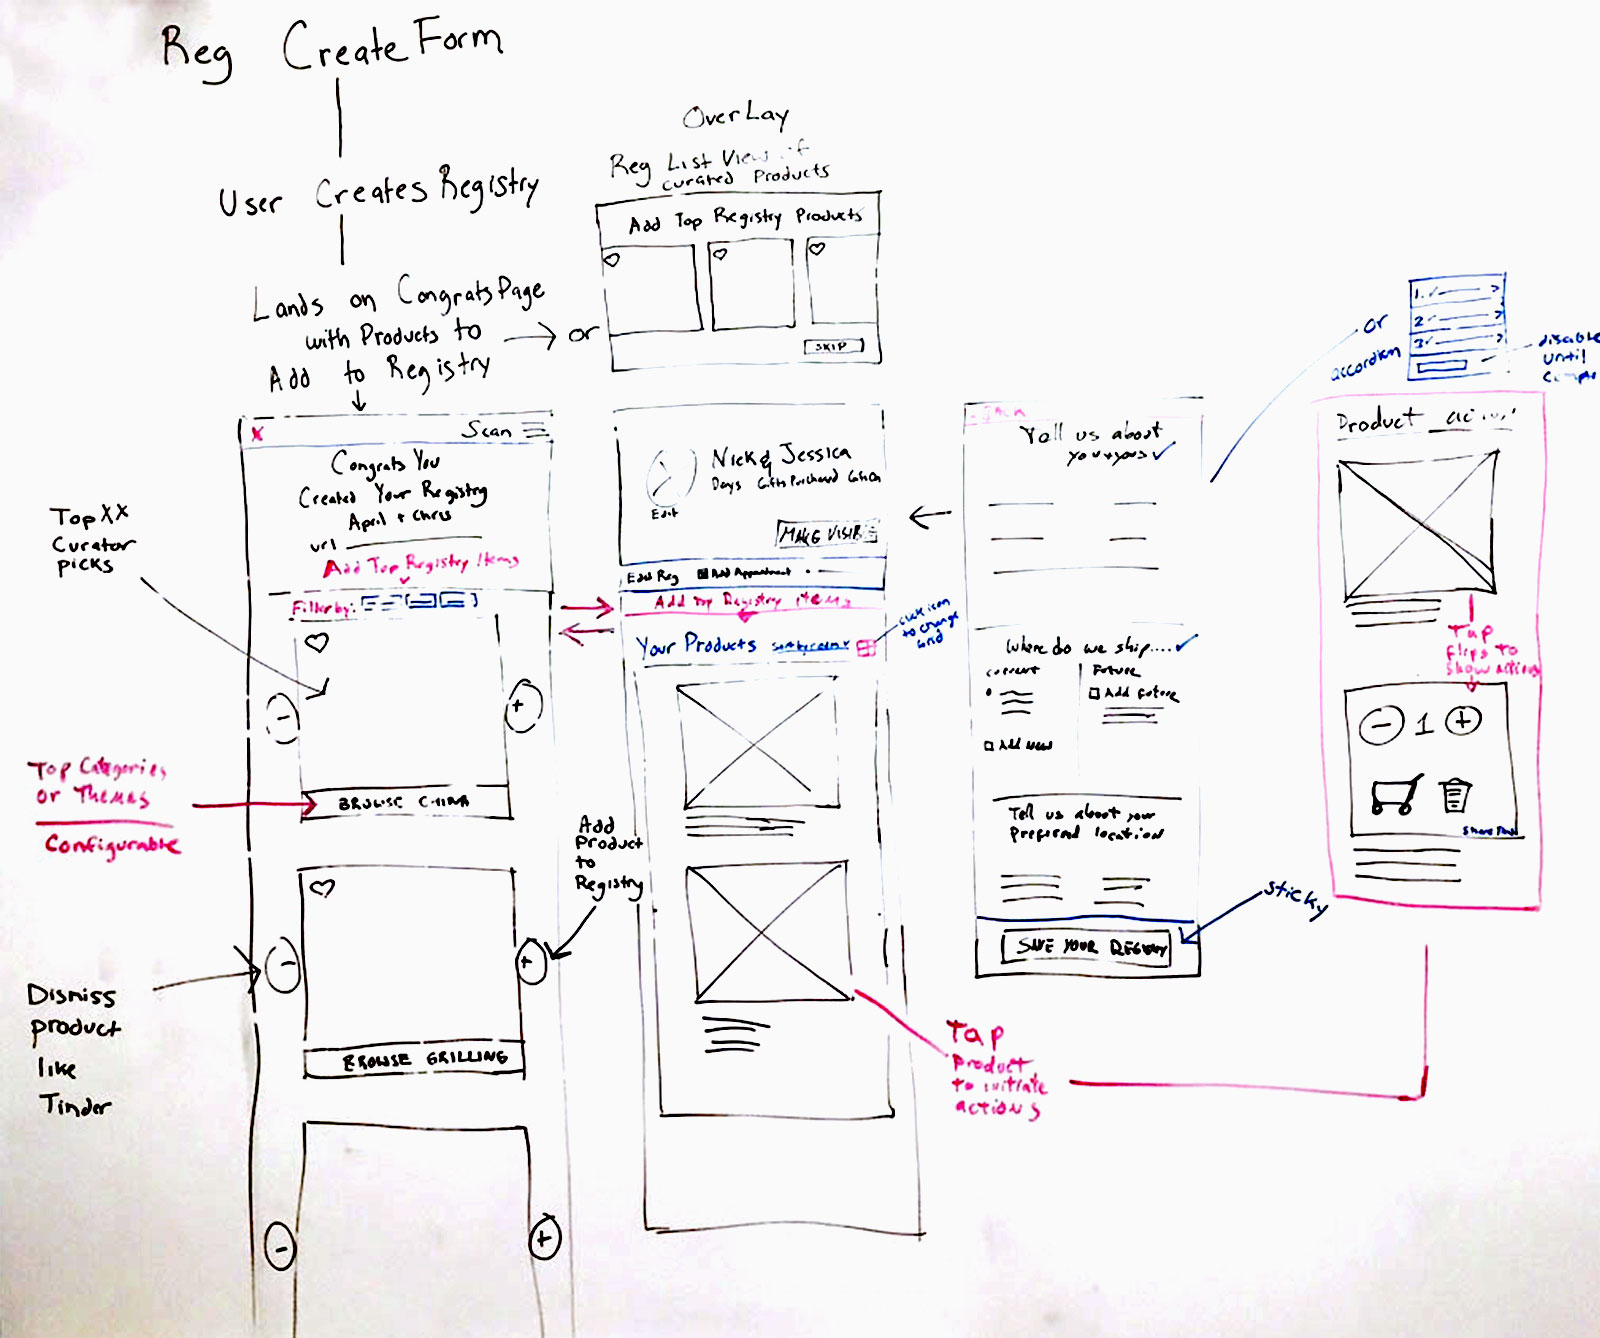 Reg Create Form
User Creates Registry
Lands on Congrats Page
with Products to
Add to Registry
or
OverLay
Reg List View of
curated Products
Add Top Registry Products
SKIP
X
Scan
Congrats You
Created Your Registry
April + Chris
url
Add Top Registry Items
Filter by:
BROWSE CHINA
BROWSE GRILLING
Top XX
Curator
picks
Top Categories
or Themes
Configurable
Dismiss
product
like
Tinder
Add
Product
to
Registry
Nick & Jessica
Days Gifts Purchased
Edit
MAKE VISIB
Edit Reg
Add Appointment
Add Top Registry items
Your Products
click icon
to change
grid
Tap
product
to initiate
actions
Tell us about
Where do we ship....
current
Future
Add future
Add New
Tell us about your
Preferred location
SAVE YOUR REGISTRY
sticky
or
accordion
1.
2
3
disable
until
Product
Tap
flips to
show actions
1